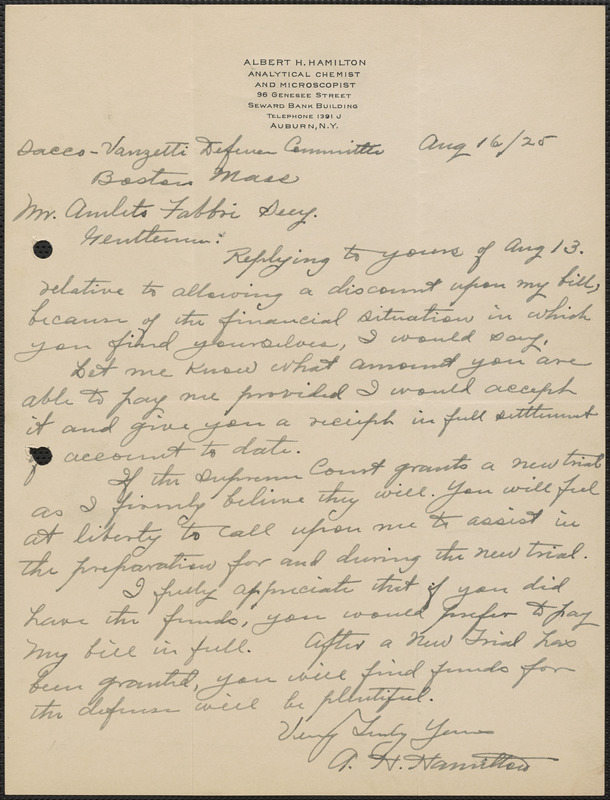 ALBERT H. HAMILTON
ANALYTICAL CHEMIST
AND MICROSCOPIST
96 GENESEE STREET
SEWARD BANK BUILDING
TELEPHONE 1391 J
AUBURN, N.Y.
Sacco-Vanzetti Defense Committee Aug 16/25
Boston Mass
Mr. Amleto Fabbri Secy.
Gentlemen:
Replying to yours of Aug 13.
relative to allowing a discount upon my bill,
because of the financial situation in which
you find yourselves, I would say,
Let me know what amount you are
able to pay me provided I would accept
it and give you a receipt in full settlement
of account to date.
If the Supreme Court grants a new trial
as I firmly believe they will. You will feel
at liberty to call upon me to assist in
the preparation for and during the new trial.
I fully appreciate that if you did
have the funds, you would prefer to pay
my bill in full. After a New Trial has
been granted, you will find funds for
the defense will be plentiful.
Very Truly Yours
A. H. Hamilton